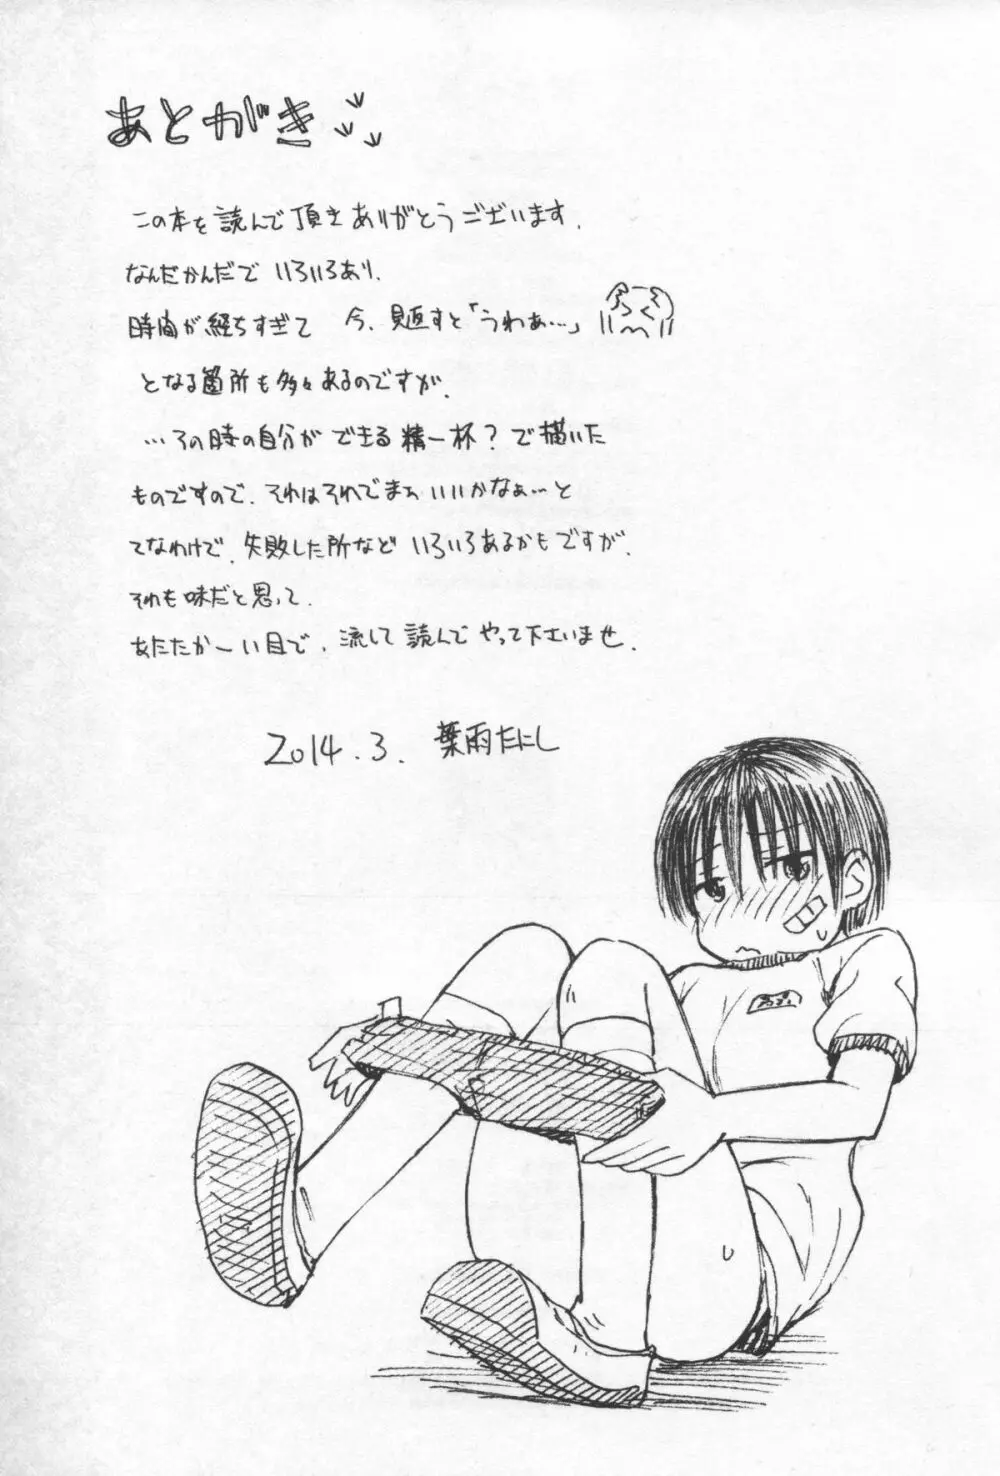 あとがき
この本を読んで頂きありがとうございます.
なんだかんだで いろいろあり.
時間が経ちすぎて 今、見返すと「うわぁ…」
となる箇所も多々あるのですが.
…その時の自分が できる 精一杯？で描いた
ものですので、それはそれでまぁ いいかなぁ…と
てなわけで、失敗した所など いろいろあるかもですが.
それも味だと思って.
あたたかーい目で、流して 読んで やって下さいませ.
2014.3. 葉雨たにし